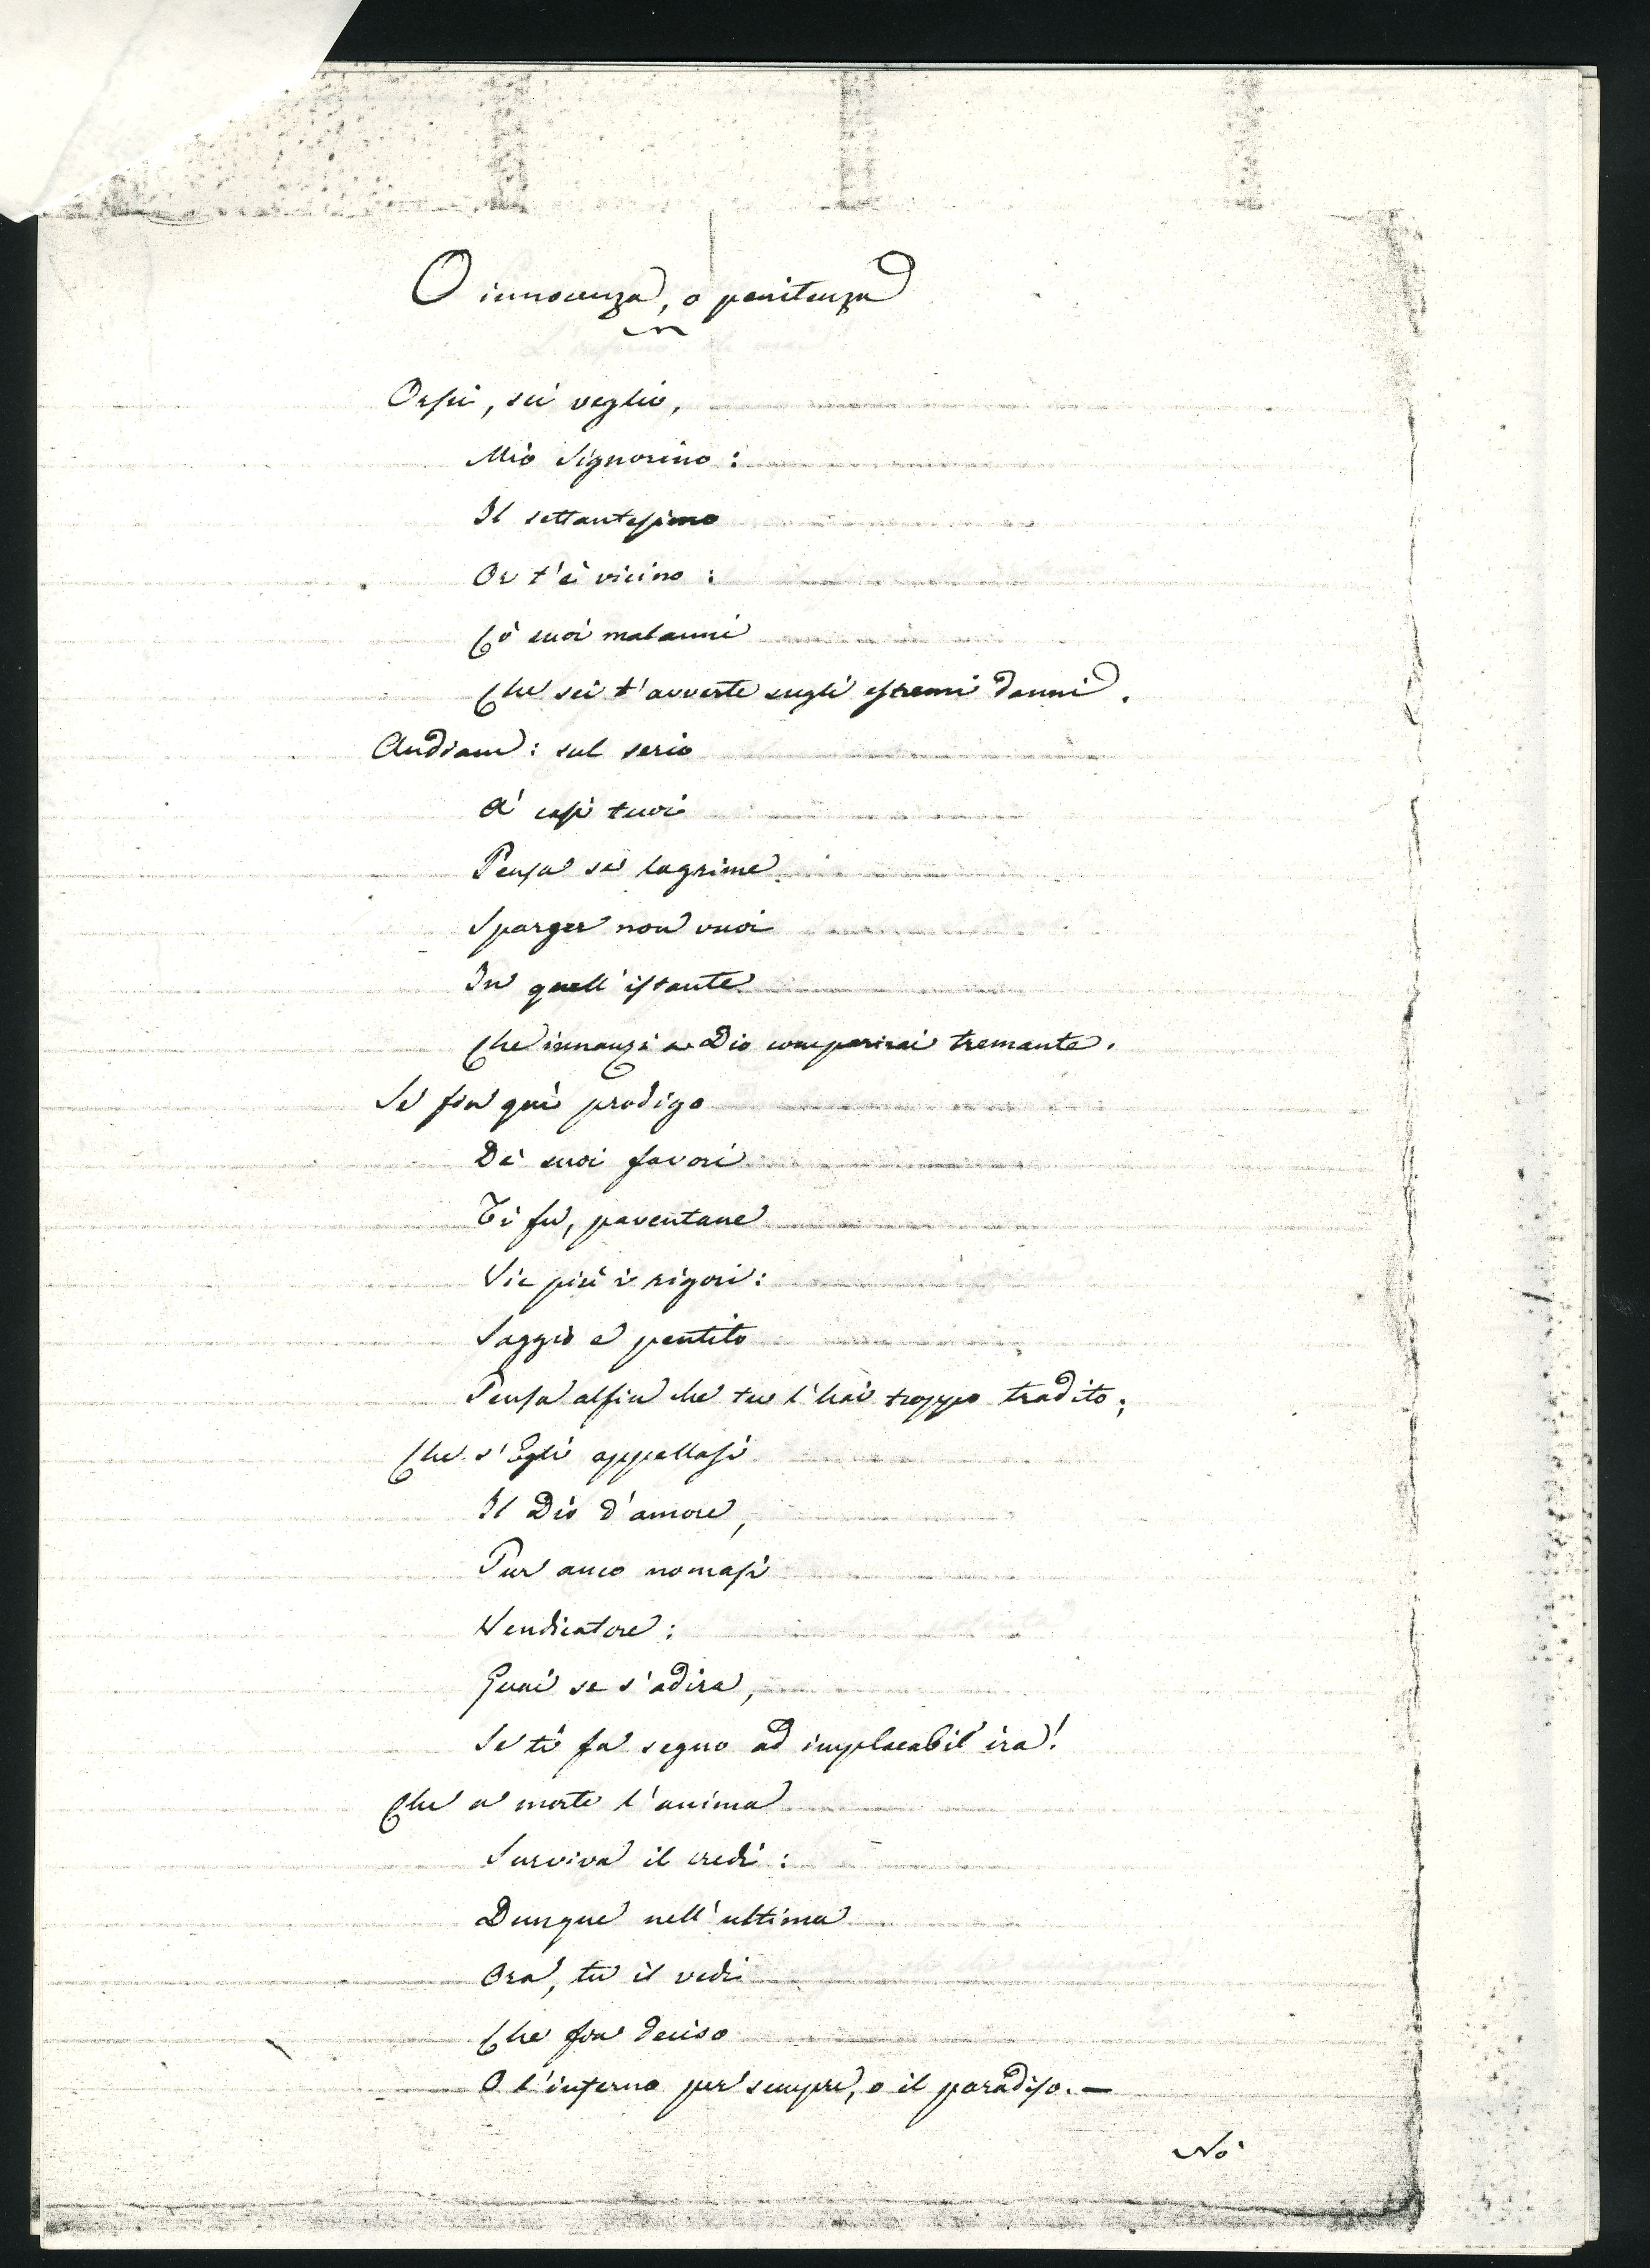 O innocenza, o penitenza
Orsù, sei veglio,
Mio Signorino:
Il settantesimo
Or t'è vicino:
Co' suoi malanni
Che sei t'avverte sugli estremi danni.
Andiam: sul serio
A' casi tuoi
Pensa se lagrime
Sparger non vuoi
In quell'istante
Che innanzi a Dio comparirai tremante.
Se fin quì prodigo
De' suoi favori
Ti fu, paventane
Vie più i rigori:
Saggio e pentito
Pensa alfin che tu l'hai troppo tradito;
Che s'Egli appellasi
Il Dio d'amore,
Pur anco nomasi
Vendicatore:
Guai se s'adira,
Se ti fa segno ad implacabil ira!
Che a morte l'anima
Survive il credi:
Dunque nell'ultima
Ora, tu il vedi
Che fia deciso
O l'inferno per sempre, o il paradiso. —
No'